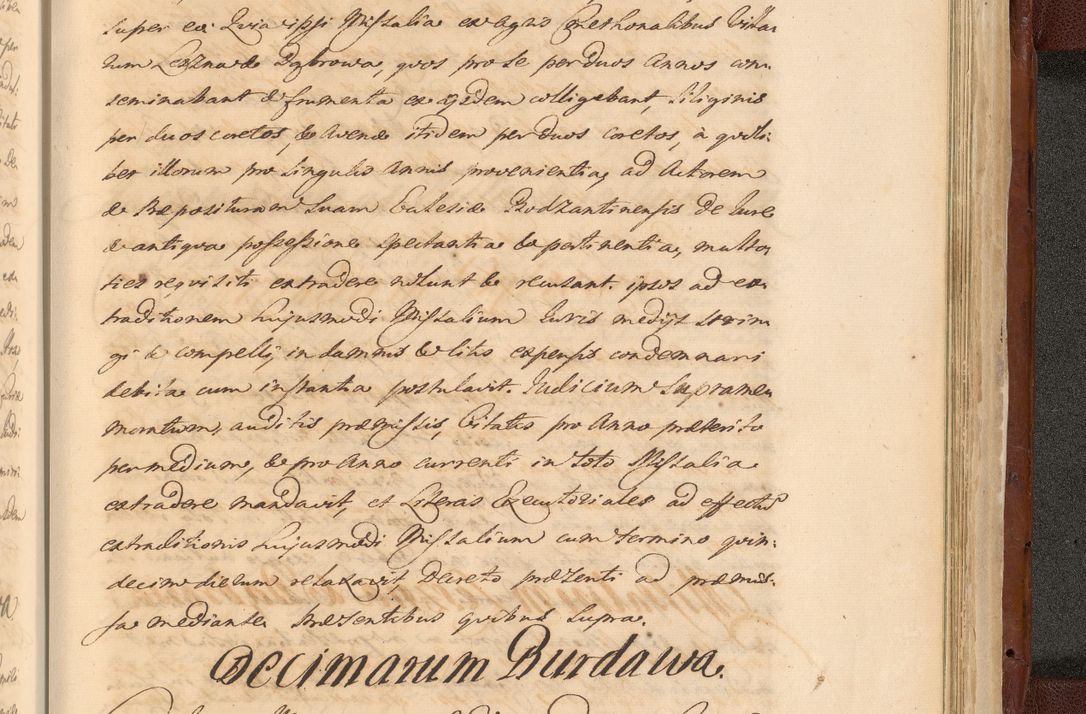 super eo Quia ipsi Missalia ex agro Czeshonalibus Villa
rum Lezna & Dąbrowa, quos pro se per duos Annos con
seminabant & frumenta ex eisdem colligebant, Siliginis
per duos coretos, & Avenæ itidem per duos coretos, à quoli
bet illorum pro singulis annis provenientia, ad Actorem
& Præposituram Suam Ecclesiæ Bodzantinensis De Iure
& antiqua possessione spectantia & pertinentia, multo
ties requisiti extradere nolunt & recusant. ipsos ad ex
traditionem hujusmodi Missalium Iuris medijs strin
gi & compelli, in damnis & litis expensis condemnari
debita cum instantia postulavit. Iudicium Supramen
moratum, auditis præmissis, Citatis pro Anno præterito
per medium, & pro Anno currenti in toto Missalia
extradere mandavit, et Literas Executoriales ad effectū
extraditionis hujusmodi Missalium cum termino quin
decim dierum relaxavit Decreto præsenti ad præmis
sa mediante. Præsentibus quibus supra.
Decimarum Burdawa.